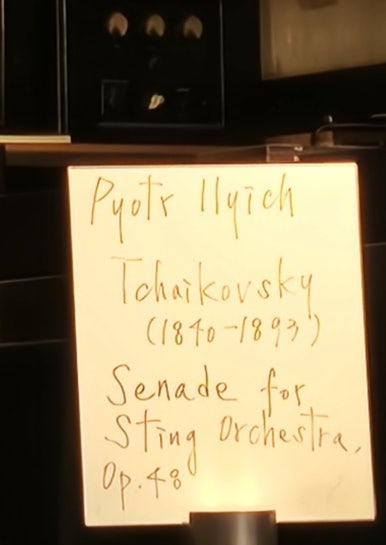 Pyotr Ilyich
Tchaikovsky
(1840-1893)
Senade for
Sting Orchestra,
Op.48